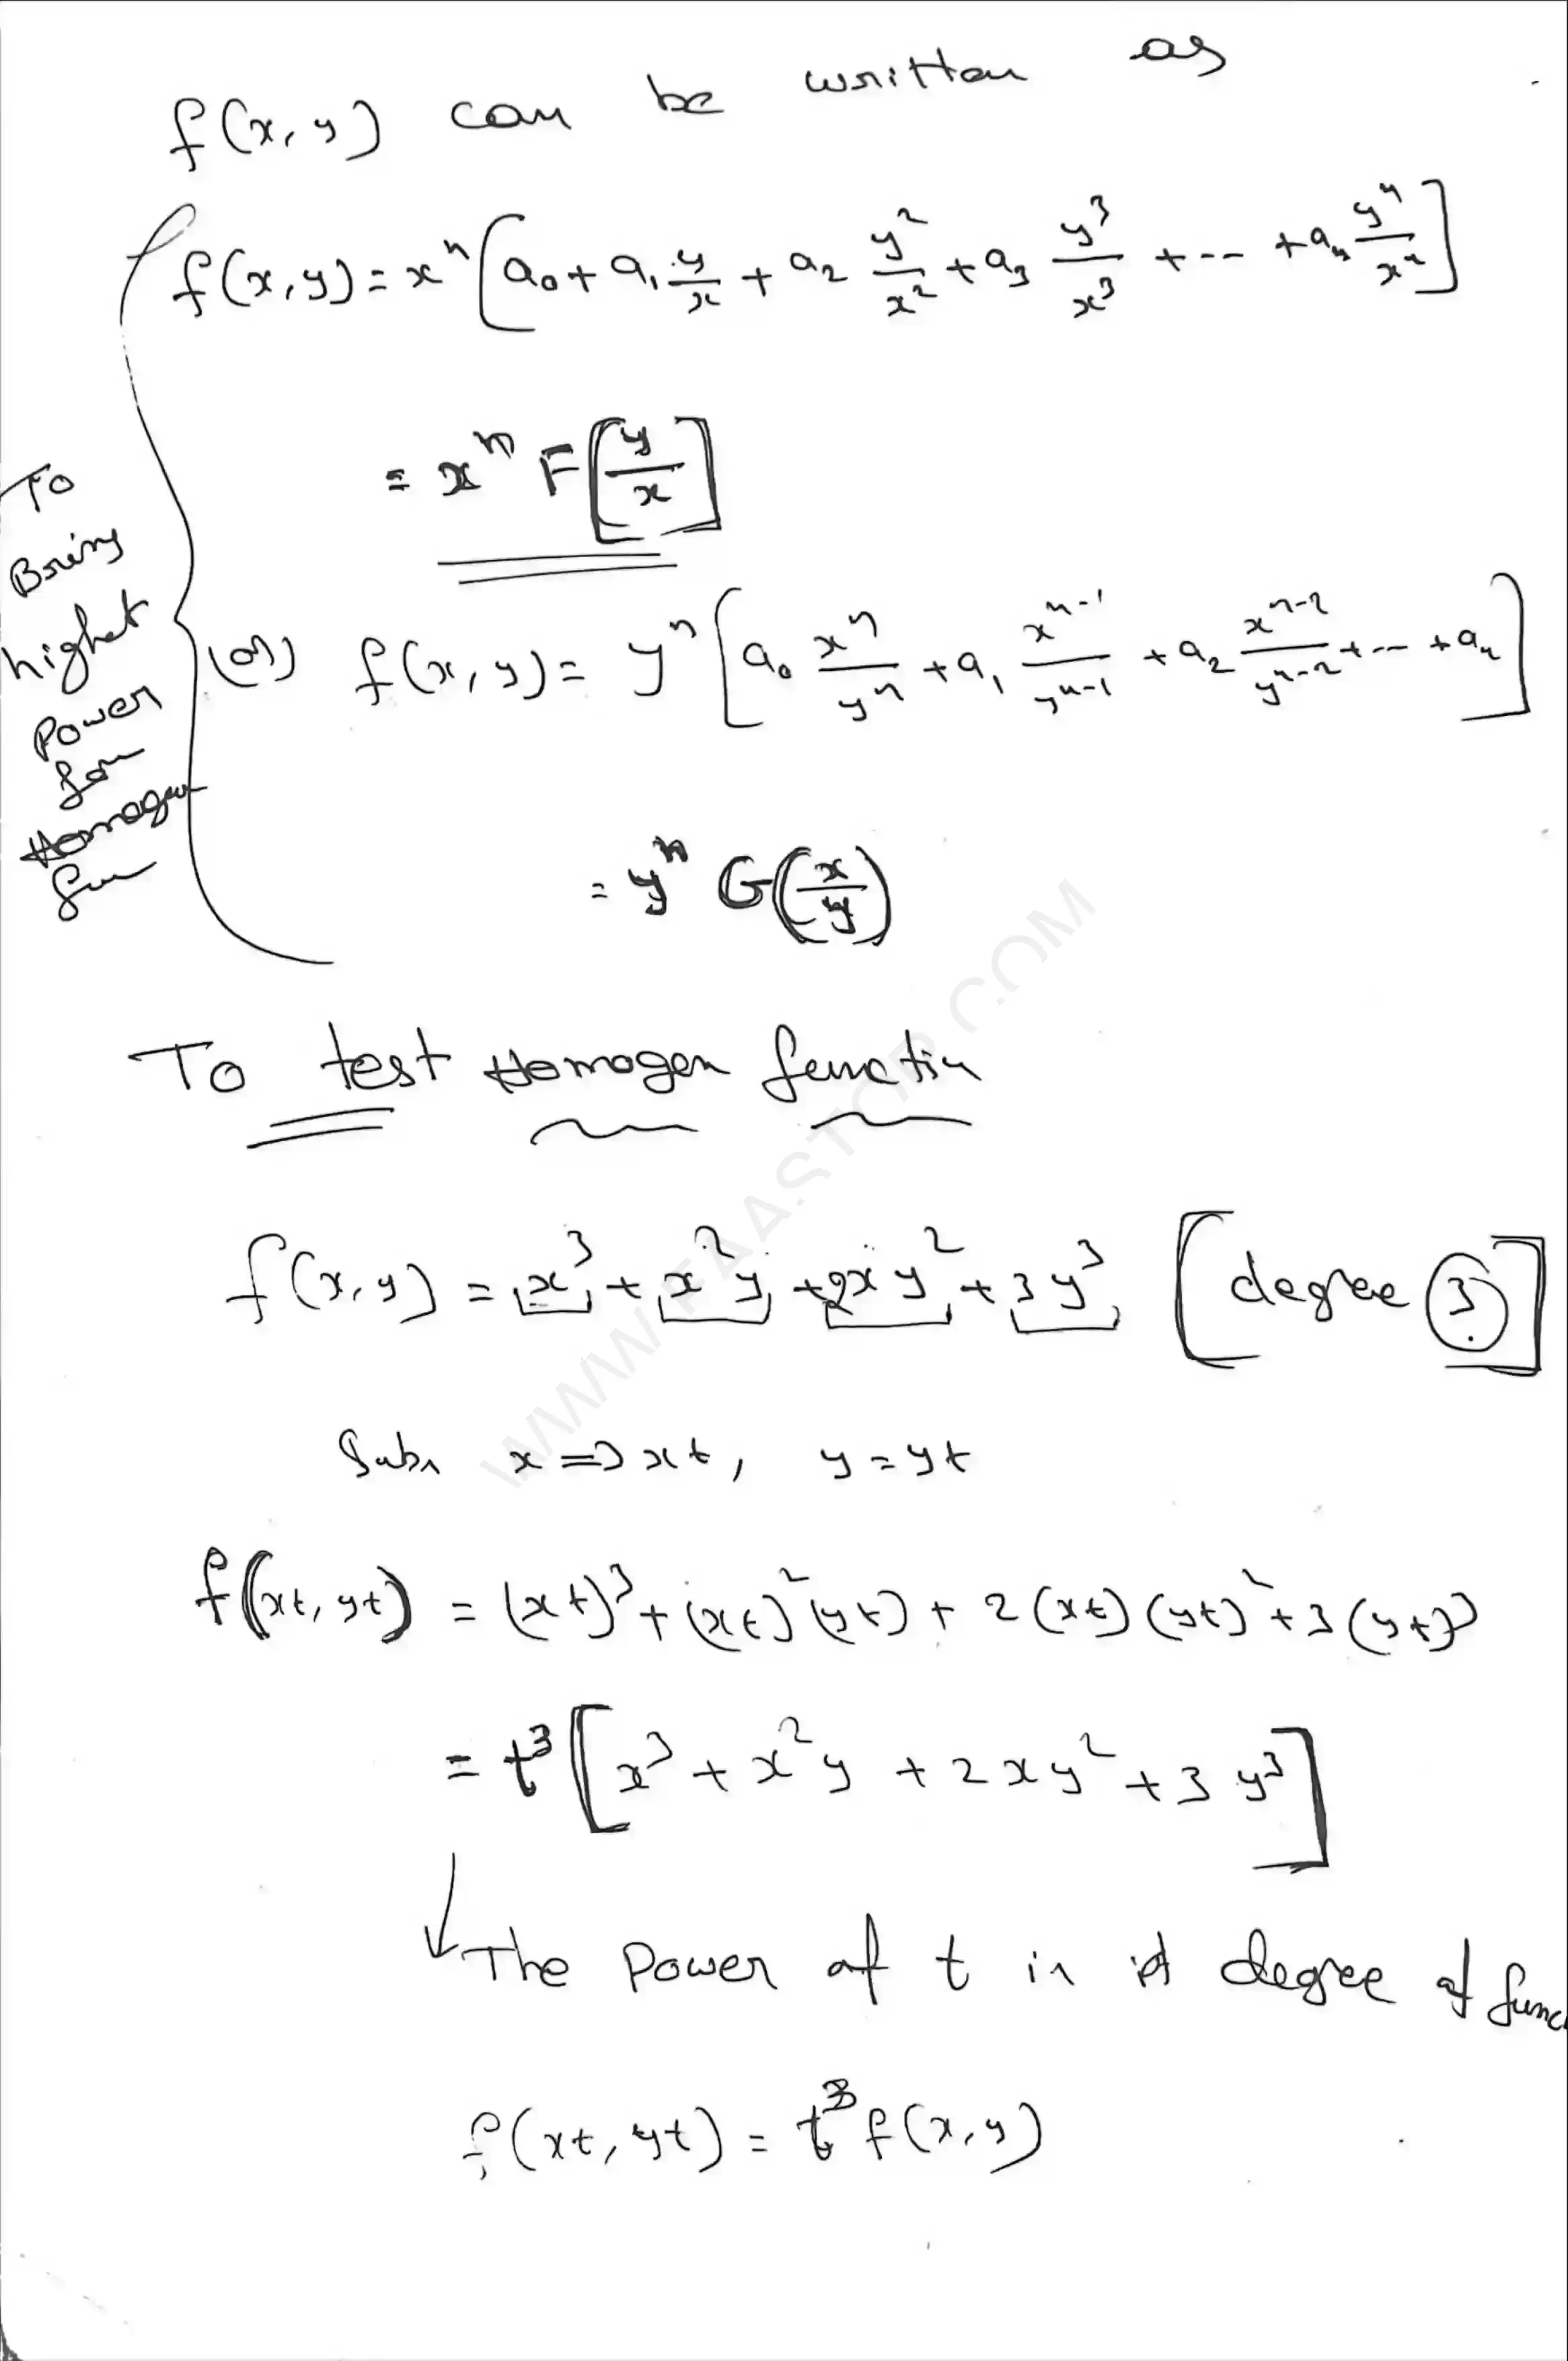 f(x, y) can be written as
f(x, y) = x^n [a0 + a1 y/x + a2 y^2/x^2 + a3 y^3/x^3 + -- + an y^n/x^n]
= x^n F[y/x]
To
Bring
highet
Power
for
Homogen
fun
(or) f(x, y) = y^n [a0 x^n/y^n + a1 x^n-1/y^n-1 + a2 x^n-2/y^n-2 + -- + an]
= y^n G(x/y)
To test Homogen function
f(x, y) = x^3 + x^2y + 2xy^2 + 3y^3 [degree 3]
Subs x => xt, y = yt
f(xt, yt) = (xt)^3 + (xt)^2(yt) + 2(xt)(yt)^2 + 3(yt)^3
= t^3 [x^3 + x^2y + 2xy^2 + 3y^3]
The Power of t is degree of func
f(xt, yt) = t^3 f(x, y)
WWW.FAASTOP.COM